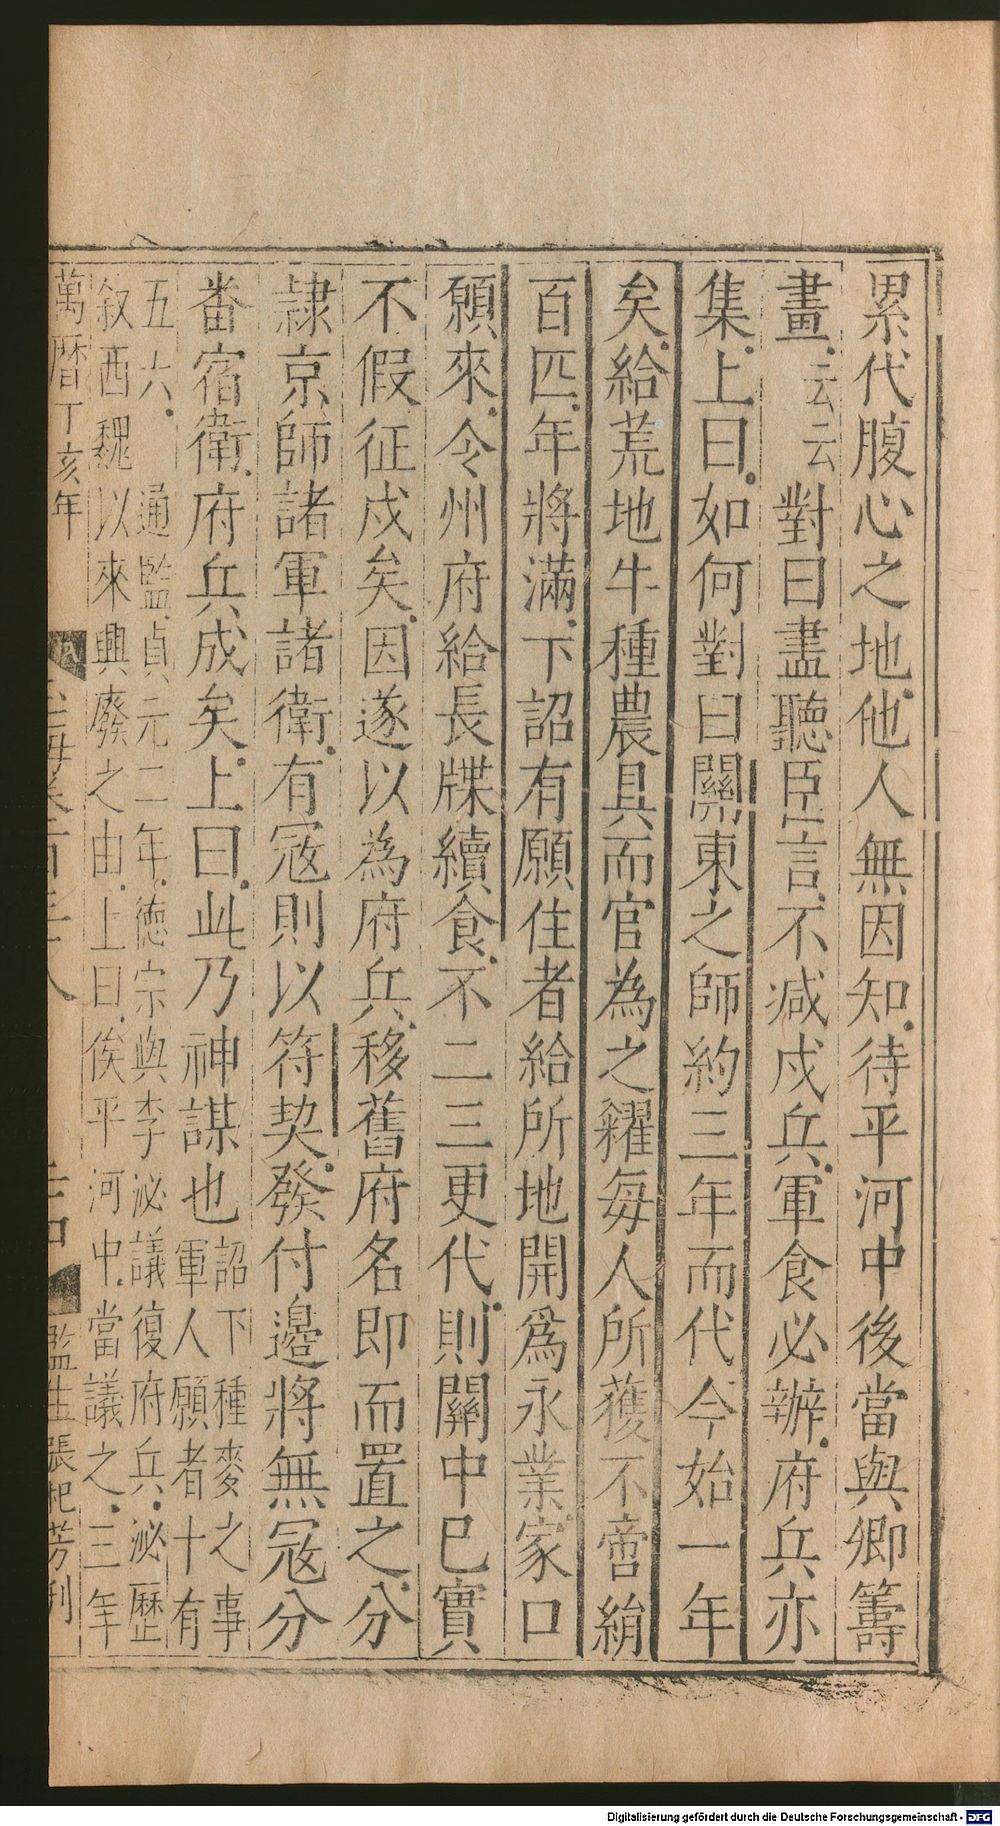 累代腹心之地他人無因知待平河中後當與卿籌
畫云云對曰盡聽臣言不減戍兵軍食必辦府兵亦
集上曰如何對曰關東之師約三年而代今始一年
矣給荒地牛種農具而官為之糴每人所獲不啻絹
百匹年將滿下詔有願住者給所地開爲永業家口
願來令州府給長牒續食不二三更代則關中已實
不假征戍矣因遂以為府兵移舊府名即而置之分
隷京師諸軍諸衛有冦則以符契發付邉將無冦分
番宿衛府兵成矣上曰此乃神謀也詔下種麥之事
軍人願者十有
五六通監貞元二年德宗與李泌議復府兵泌歷
叙西魏以來興廢之由上曰俟平河中當議之三年
萬曆丁亥年
監生張杞芳刊
Digitalisierung gefördert durch die Deutsche Forschungsgemeinschaft - DFG